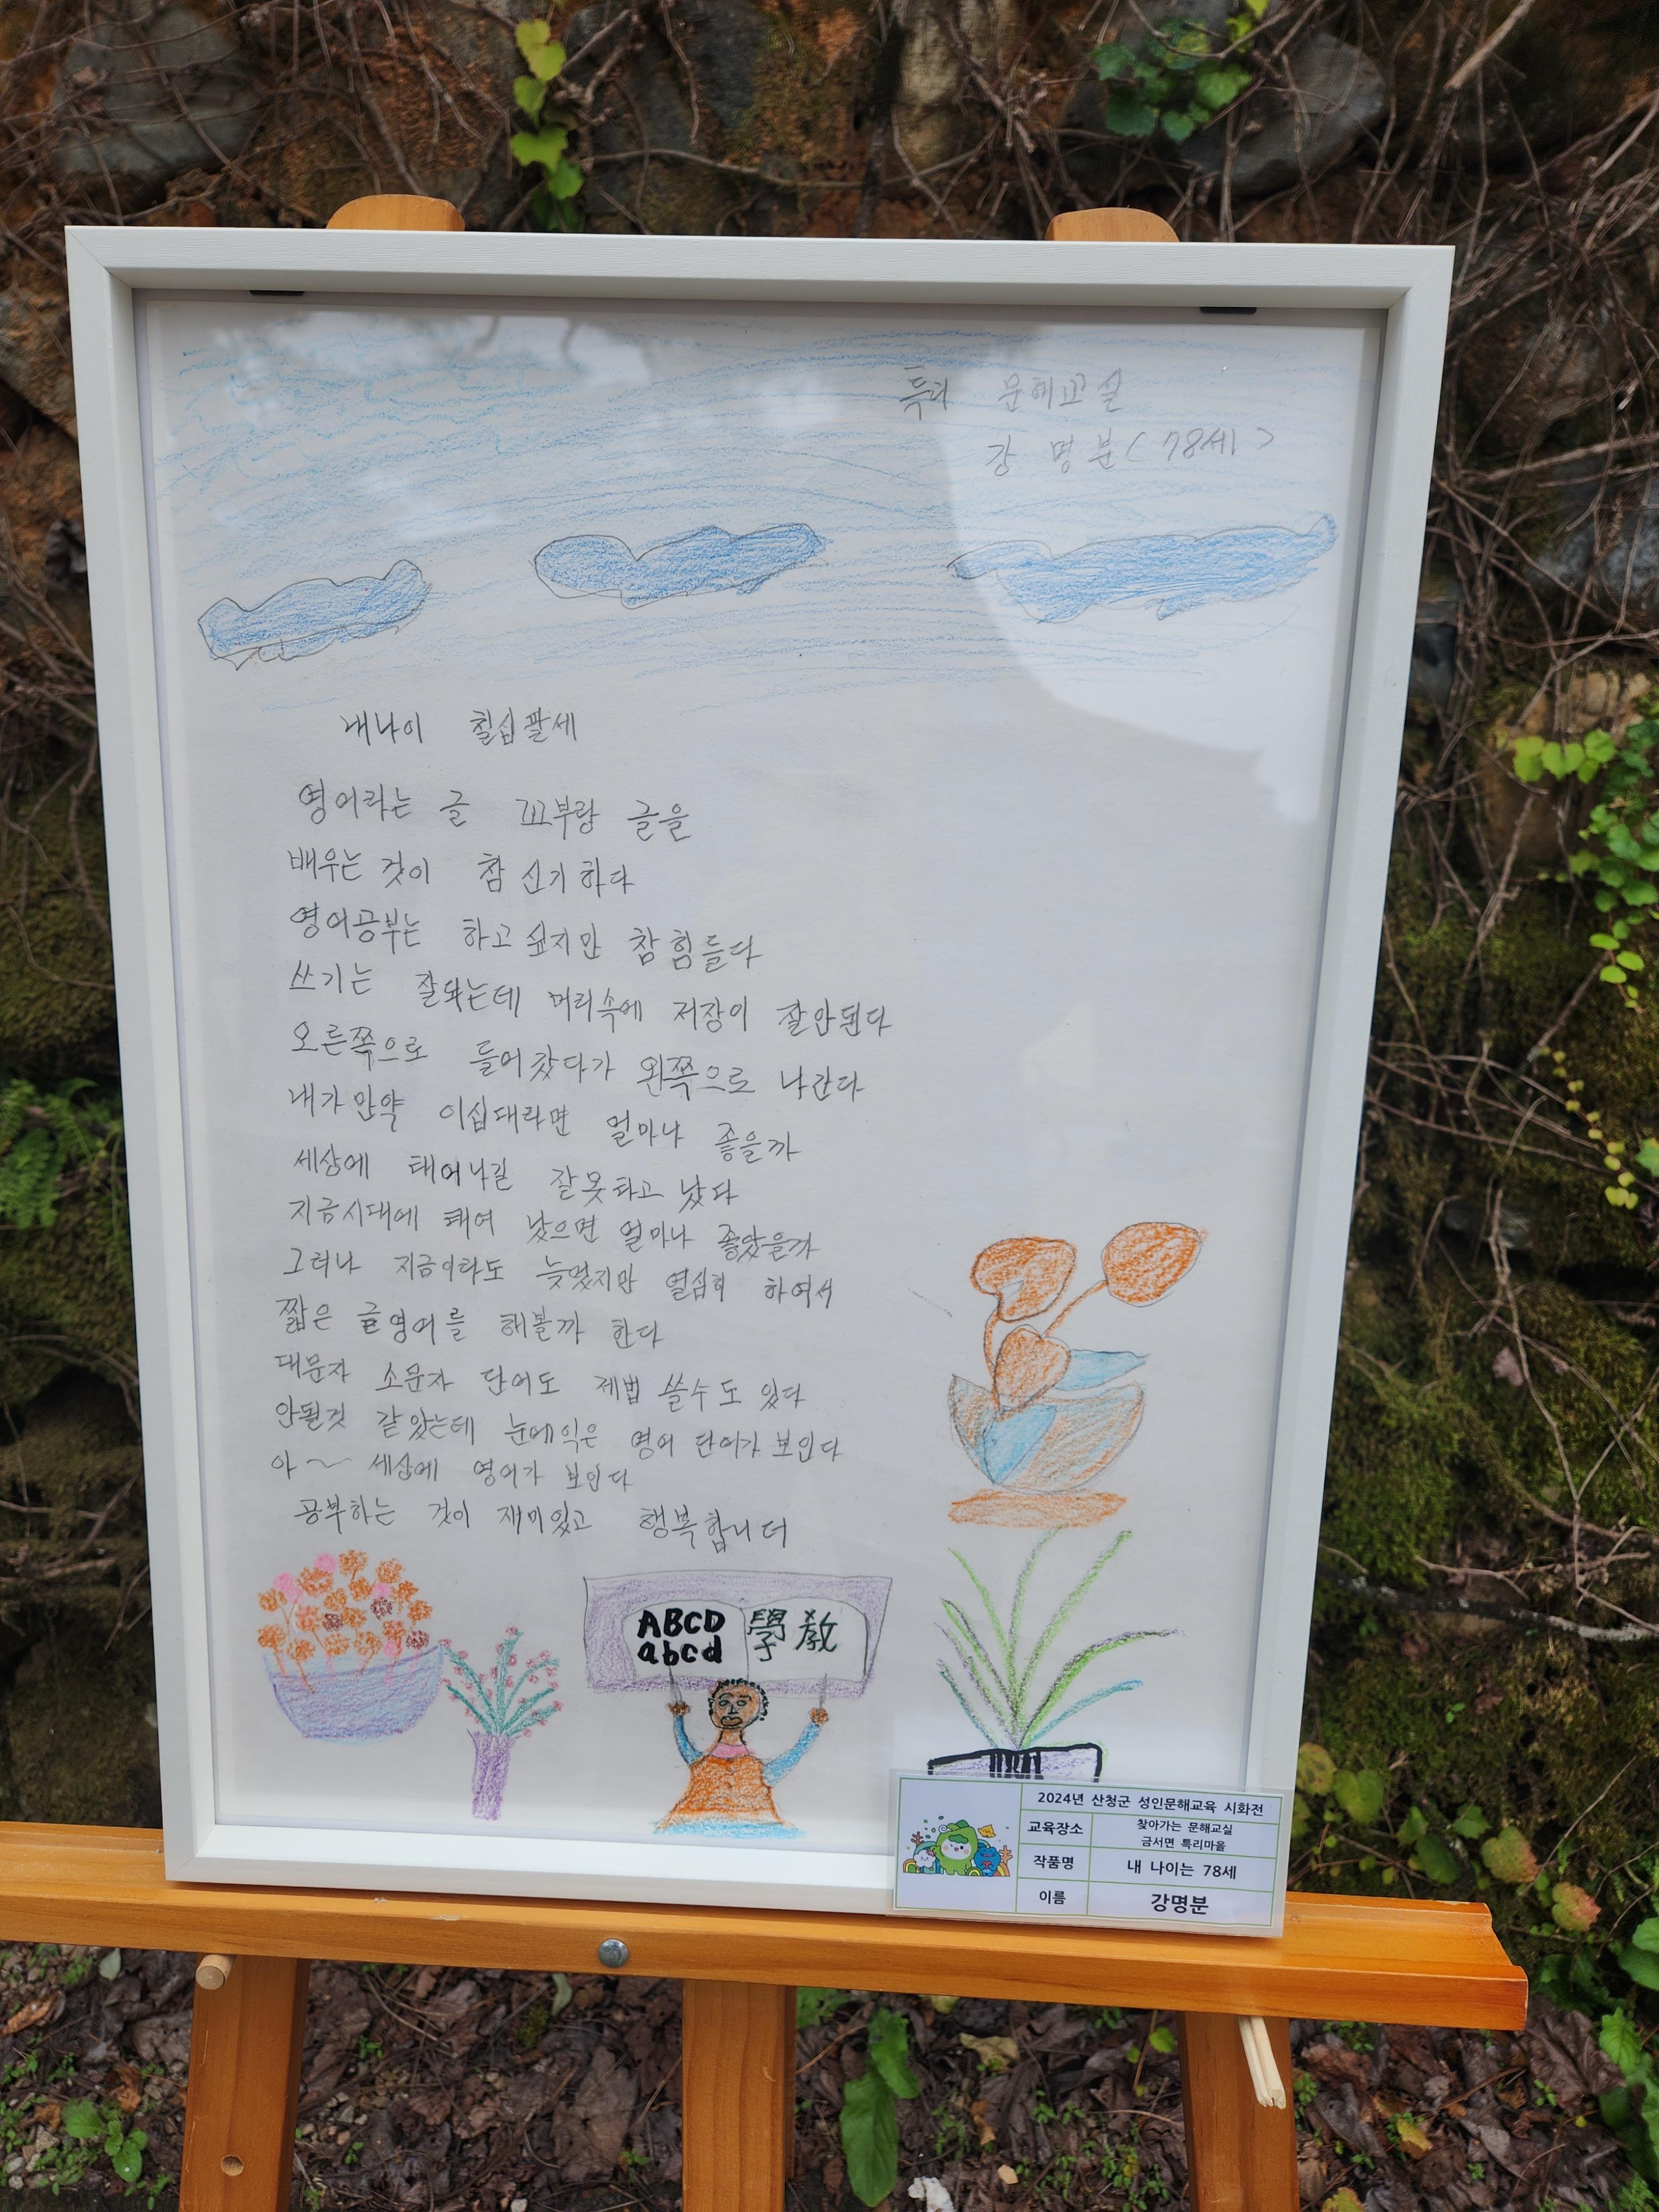 특리 문해교실
강 명분(78세)
내나이 칠십팔세
영어라는 글 꼬부랑 글을
배우는 것이 참 신기하다
영어공부는 하고싶지만 참 힘들다
쓰기는 잘돼는데 머리속에 저장이 잘안된다
오른쪽으로 들어갔다가 왼쪽으로 나간다
내가만약 이십대라면 얼마나 좋을까
세상에 태어나길 잘못하고 났다
지금시대에 태여 났으면 얼마나 좋았을까
그러나 지금이라도 늦었지만 열심히 하여서
짧은 글영어를 해볼까 한다
대문자 소문자 단어도 제법 쓸수도 있다
안될것 같았는데 눈에익은 영어 단어가 보인다
아~ 세상에 영어가 보인다
공부하는 것이 재미있고 행복합니더
ABCD 學教
abcd
2024년 산청군 성인문해교육 시화전
교육장소 찾아가는 문해교실
금서면 특리마을
작품명 내 나이는 78세
이름 강명분